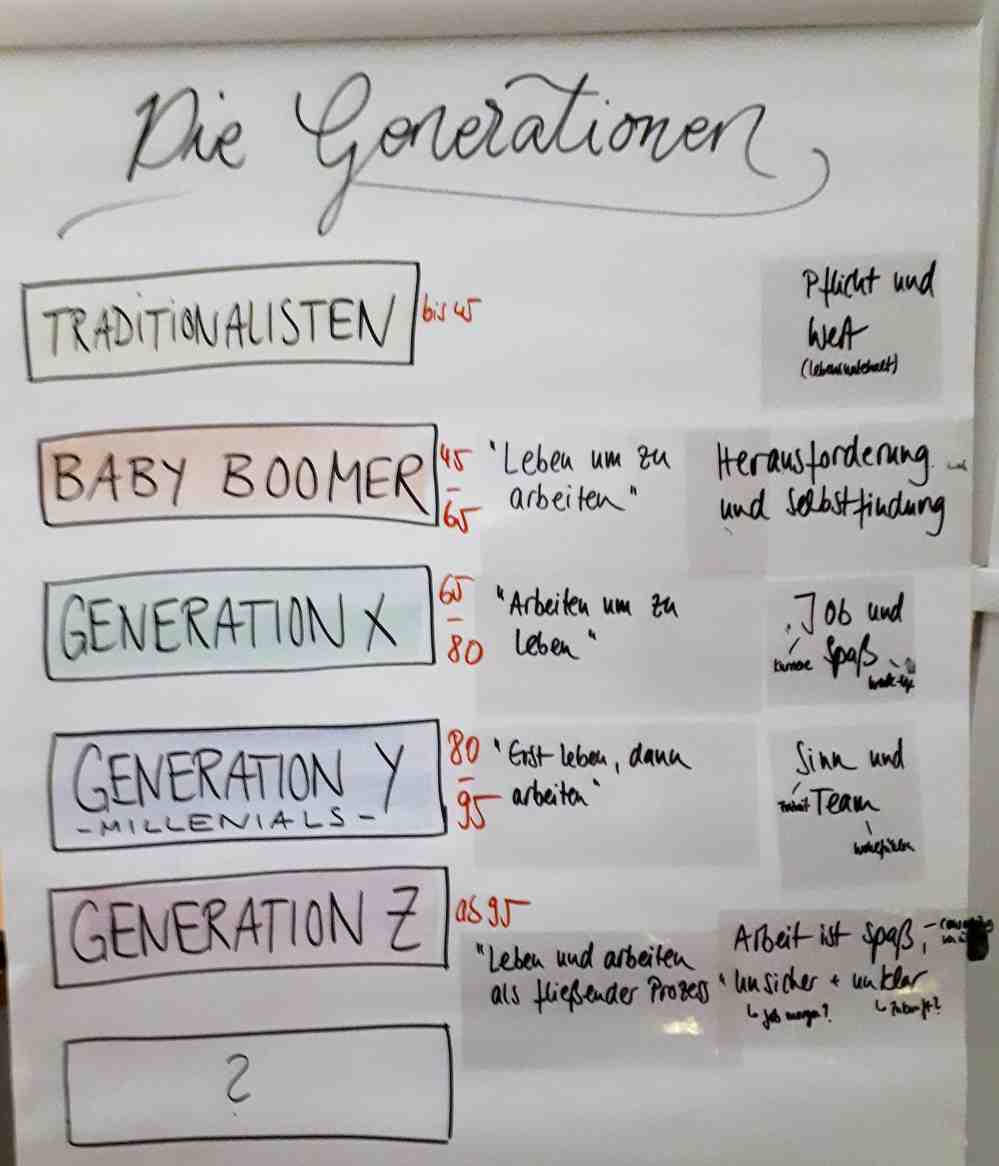 Die Generationen
TRADITIONALISTEN
bis 45
Pflicht und
Wert
BABY BOOMER
45
-
65
"Leben um zu
arbeiten"
Herausforderung
und Selbstfindung
GENERATION X
65
-
80
"Arbeiten um zu
leben"
Job und
Spaß
GENERATION Y
-MILLENIALS-
80
-
95
"Erst leben, dann
arbeiten"
Sinn und
Team
GENERATION Z
ab 95
"Leben und arbeiten
als fließender Prozess"
Arbeit ist Spaß,
unsicher + unklar
↳ Job morgen?
↳ Zukunft?
?